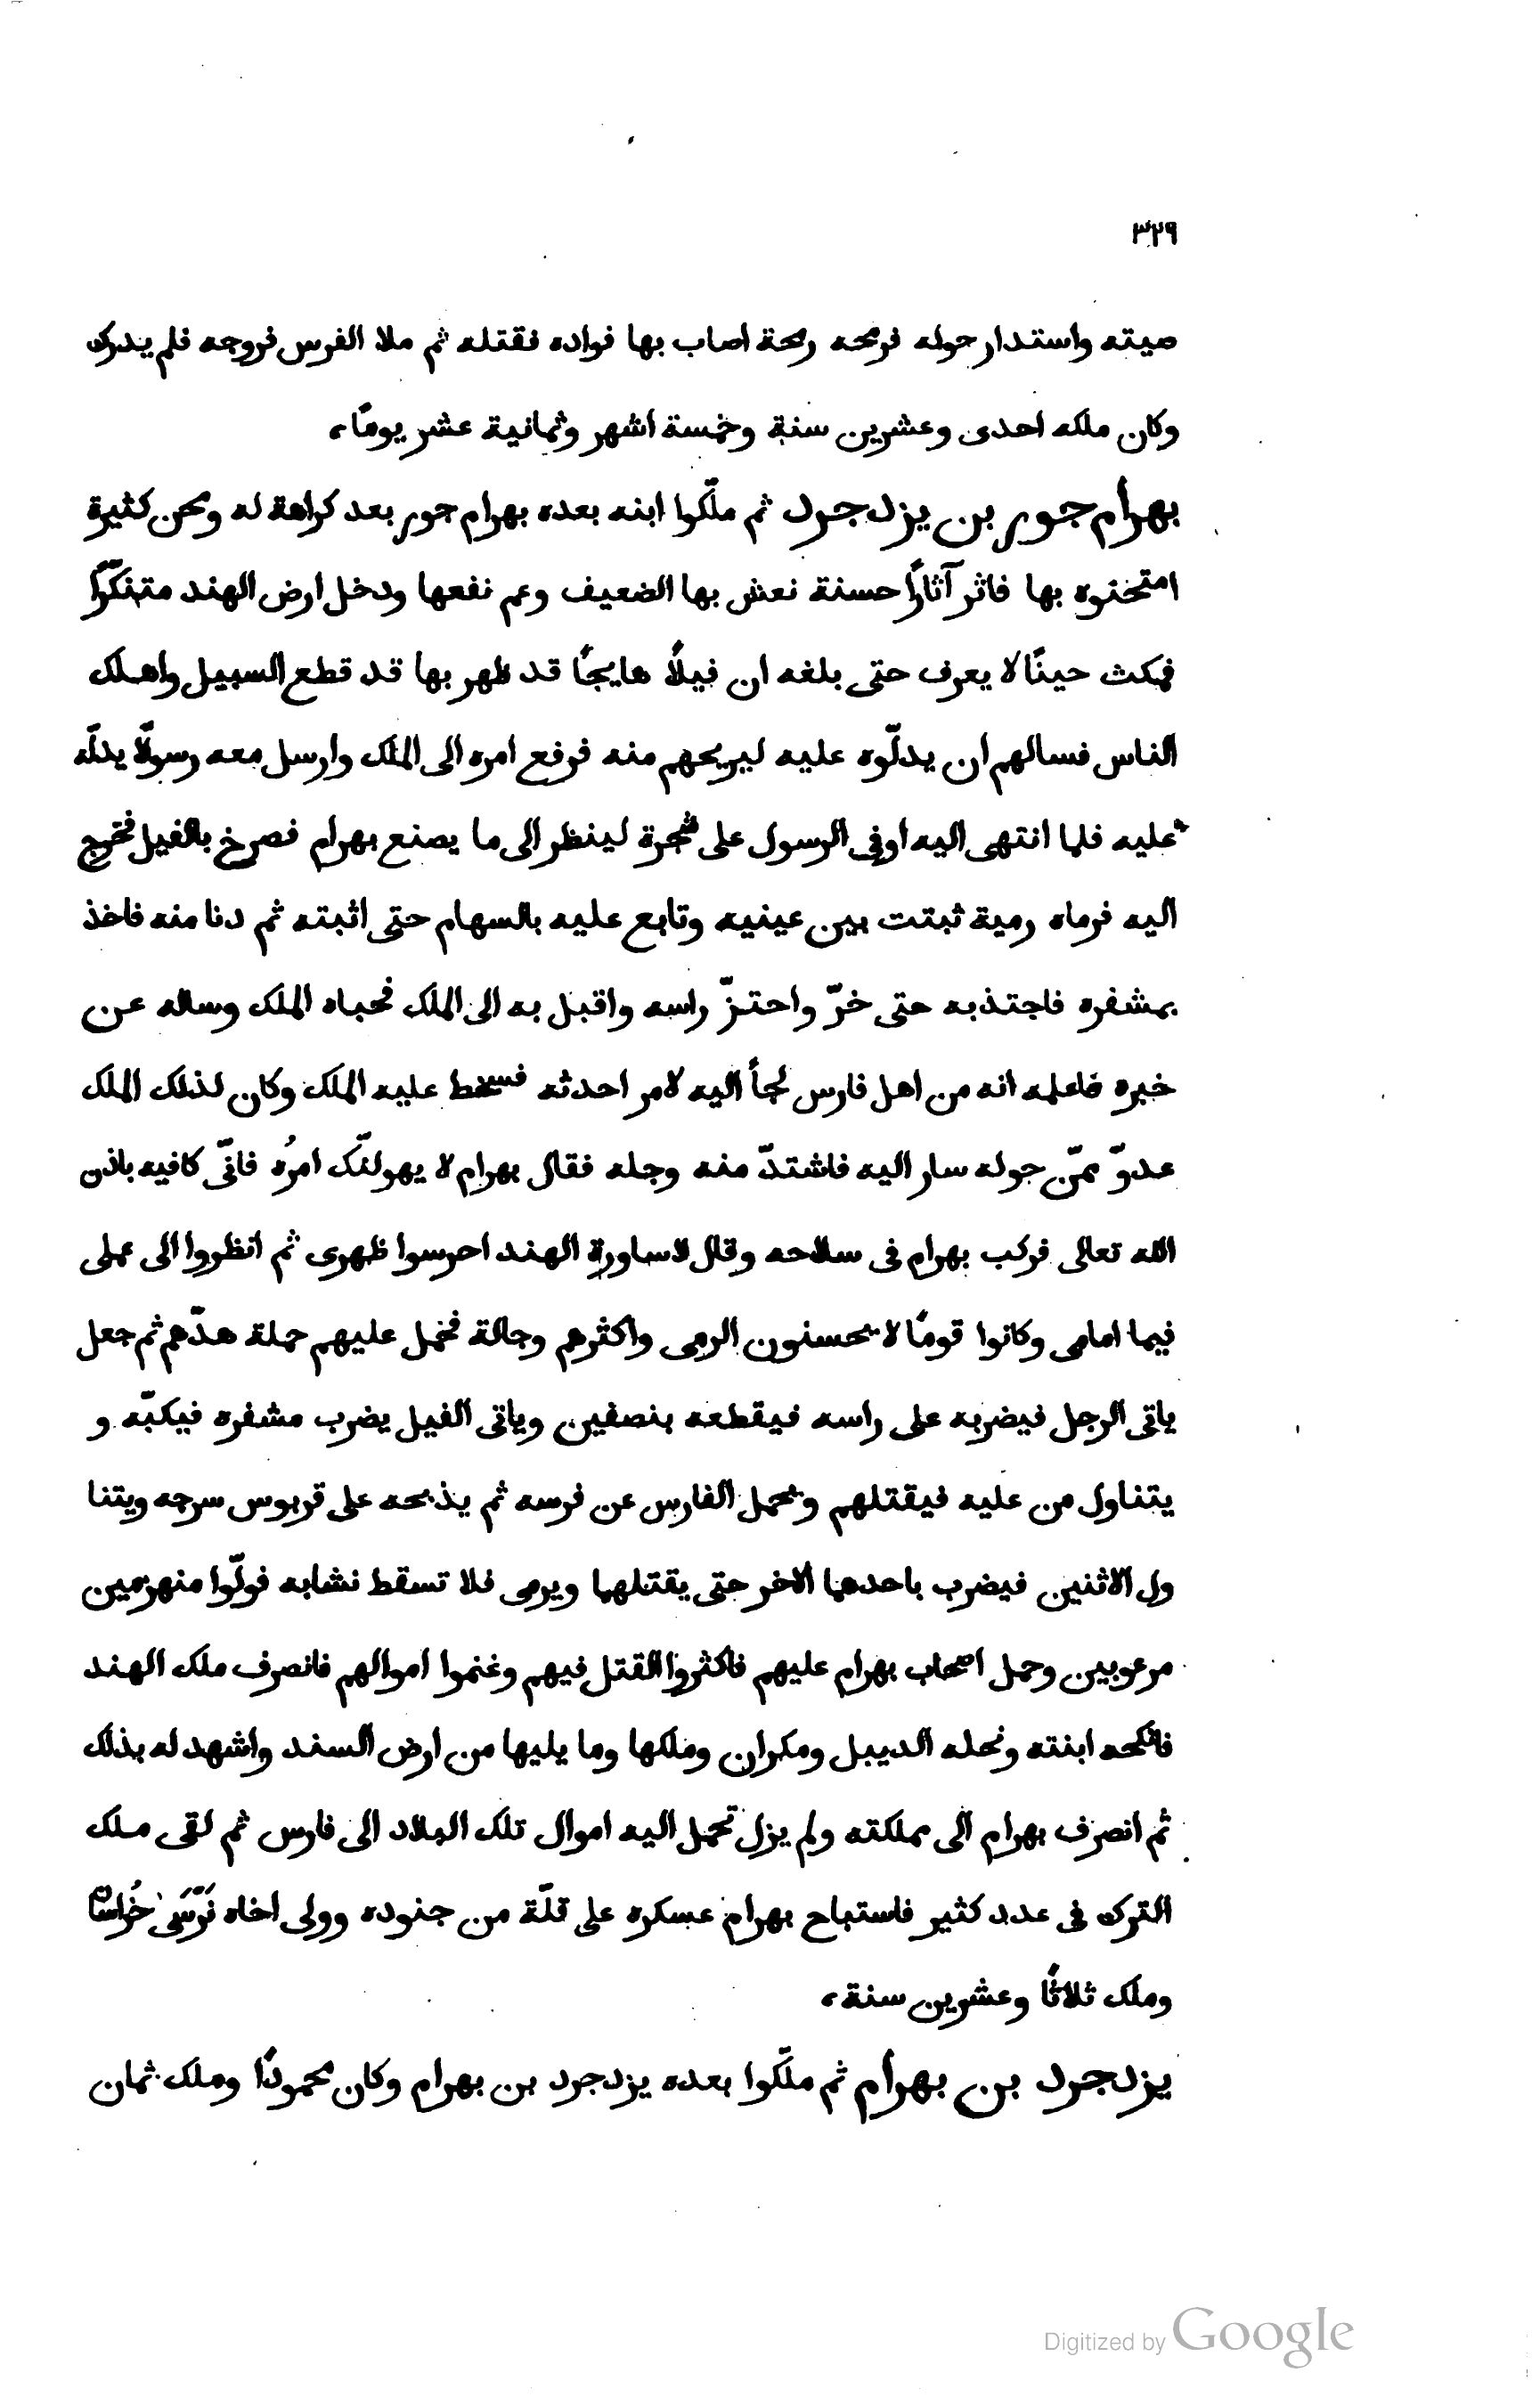 ٣٢٩
صيته واستدار حوله فرمحه رمحة اصاب بها فواده فقتله ثم ملا الفرس فروجه فلم يدرك
وكان ملكه احدى وعشرين سنة وخمسة اشهر وثمانية عشر يومًا،
بهرام جور بن يزدجرد ثم ملّكوا ابنه بعده بهرام جور بعد كراهة له ومحن كثيرة
امتحنوه بها فاثر آثارًا حسنة نعش بها الضعيف وعم نفعها ودخل ارض الهند متنكّرًا
فمكث حينًا لا يعرف حتى بلغه ان فيلًا هايجًا قد ظهر بها قد قطع السبيل واهلك
الناس فسالهم ان يدلّوه عليه ليريحهم منه فرفع امره الى الملك وارسل معه رسولًا يدلّه
عليه فلما انتهى اليه اوفى الرسول على شجرة لينظر الى ما يصنع بهرام فصرخ بالفيل فخرج
اليه فرماه رمية ثبتت بين عينيه وتابع عليه بالسهام حتى اثبته ثم دنا منه فاخذ
بمشفره فاجتذبه حتى خرّ واحتزّ راسه واقبل به الى الملك فحباه الملك وساله عن
خبره فاعلمه انه من اهل فارس لجأ اليه لامر احدثه فسخط عليه الملك وكان لذلك الملك
عدوّ ممّن حوله سار اليه فاشتدّ منه وجله فقال بهرام لا يهولنّك امرُه فانّى كافيه باذن
الله تعالى فركب بهرام فى سلاحه وقال لاساورة الهند احرسوا ظهرى ثم انظروا الى عملى
فيما امامى وكانوا قومًا لا يحسنون الرمى واكثرهم رجالة فحمل عليهم حملة هدّهم ثم جعل
ياتى الرجل فيضربه على راسه فيقطعه بنصفين وياتى الفيل يضرب مشفره فيكبّه و
يتناول من عليه فيقتلهم ويحمل الفارس عن فرسه ثم يذبحه على قربوس سرجه ويتنا
ول الاثنين فيضرب باحدهما الاخر حتى يقتلهما ويرمى فلا تسقط نشابه فولّوا منهزمين
مرعوبين وحمل اصحاب بهرام عليهم فاكثروا القتل فيهم وغنموا اموالهم فانصرف ملك الهند
فانكحه ابنته ونحله الديبل ومكران وملكها وما يليها من ارض السند واشهد له بذلك
ثم انصرف بهرام الى مملكته ولم يزل تحمل اليه اموال تلك البلاد الى فارس ثم لقى ملك
الترك فى عدد كثير فاستباح بهرام عسكره على قلّة من جنوده وولى اخاه نَرْسَى خُراسان
وملك ثلاثًا وعشرين سنة،
يزدجرد بن بهرام ثم ملّكوا بعده يزدجرد بن بهرام وكان محمودًا وملك ثمان
Digitized by Google